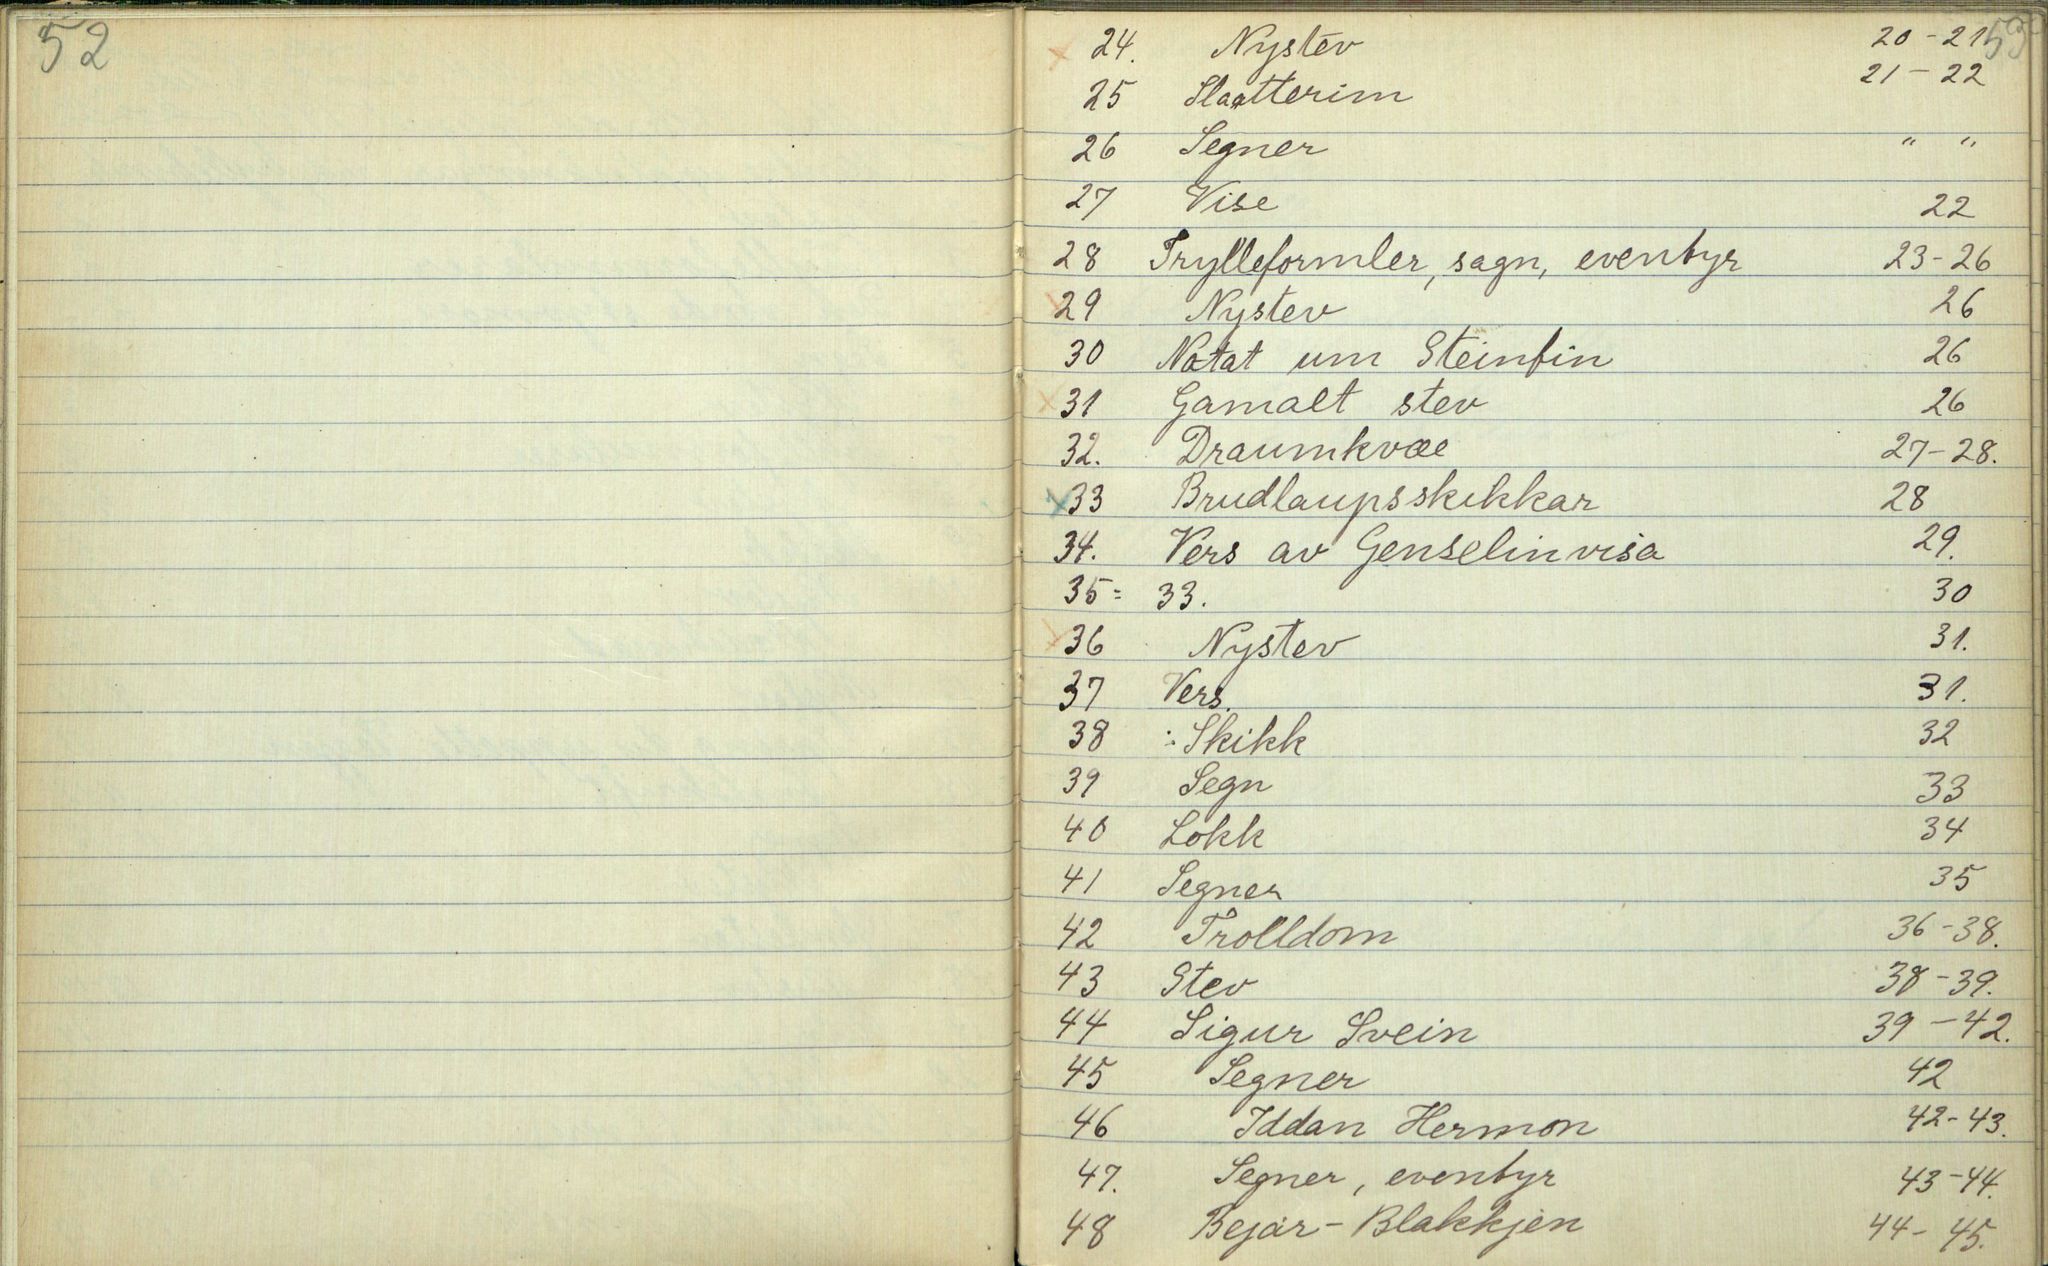 52
53
24. Nystev 20-21
25 Slaatterim 21-22
26 Segner " "
27 Vise 22
28 Trylleformler, sagn, eventyr 23-26
29 Nystev 26
30 Notat um Steinfin 26
31 Gamalt stev 26
32. Draumkvæe 27-28.
33 Brudlaupsskikkar 28
34. Vers av Genselinvisa 29.
35 = 33. 30
36 Nystev 31.
37 Vers. 31.
38 :Skikk 32
39 Segn 33
40 Lokk 34
41 Segner 35
42 Trolldom 36-38.
43 Stev 38-39.
44 Sigur Svein 39-42.
45 Segner 42
46 Iddan Hermon 42-43.
47. Segner, eventyr 43-44.
48 Bejar-Blakkjen 44-45.